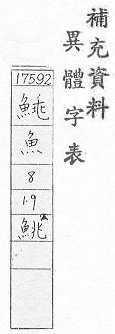 補充資料
異體字表
17592
魠
魚
8
19
鮡